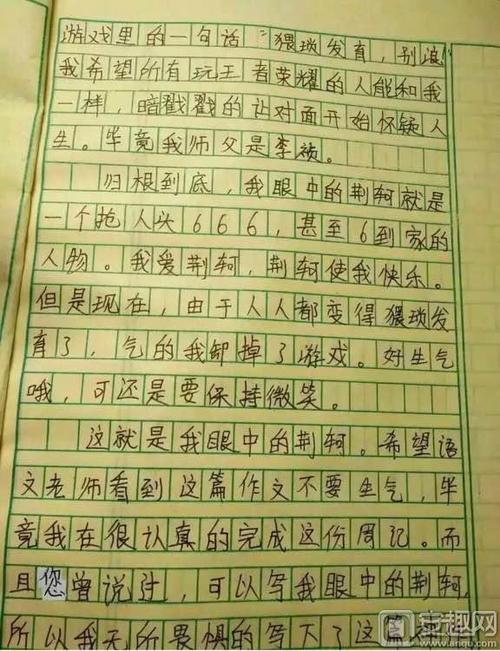 游戏里的一句话:猥琐发育,别浪
我希望所有玩王者荣耀的人能和我
一样,暗戳戳的让对面开始怀疑人
生。毕竟我师父是李祯。
归根到底,我眼中的荆轲就是
一个抢人头666,甚至6到家的
人物。我爱荆轲,荆轲使我快乐。
但是现在,由于人人都变得猥琐发
育了,气的我卸掉了游戏。好生气
哦,可还是要保持微笑。
这就是我眼中的荆轲。希望语
文老师看到这篇作文不要生气,毕
竟我在很认真的完成这份周记。而
且您曾说过,可以写我眼中的荆轲
所以我无所畏惧的写下了这篇
安趣网
www.anqu.com